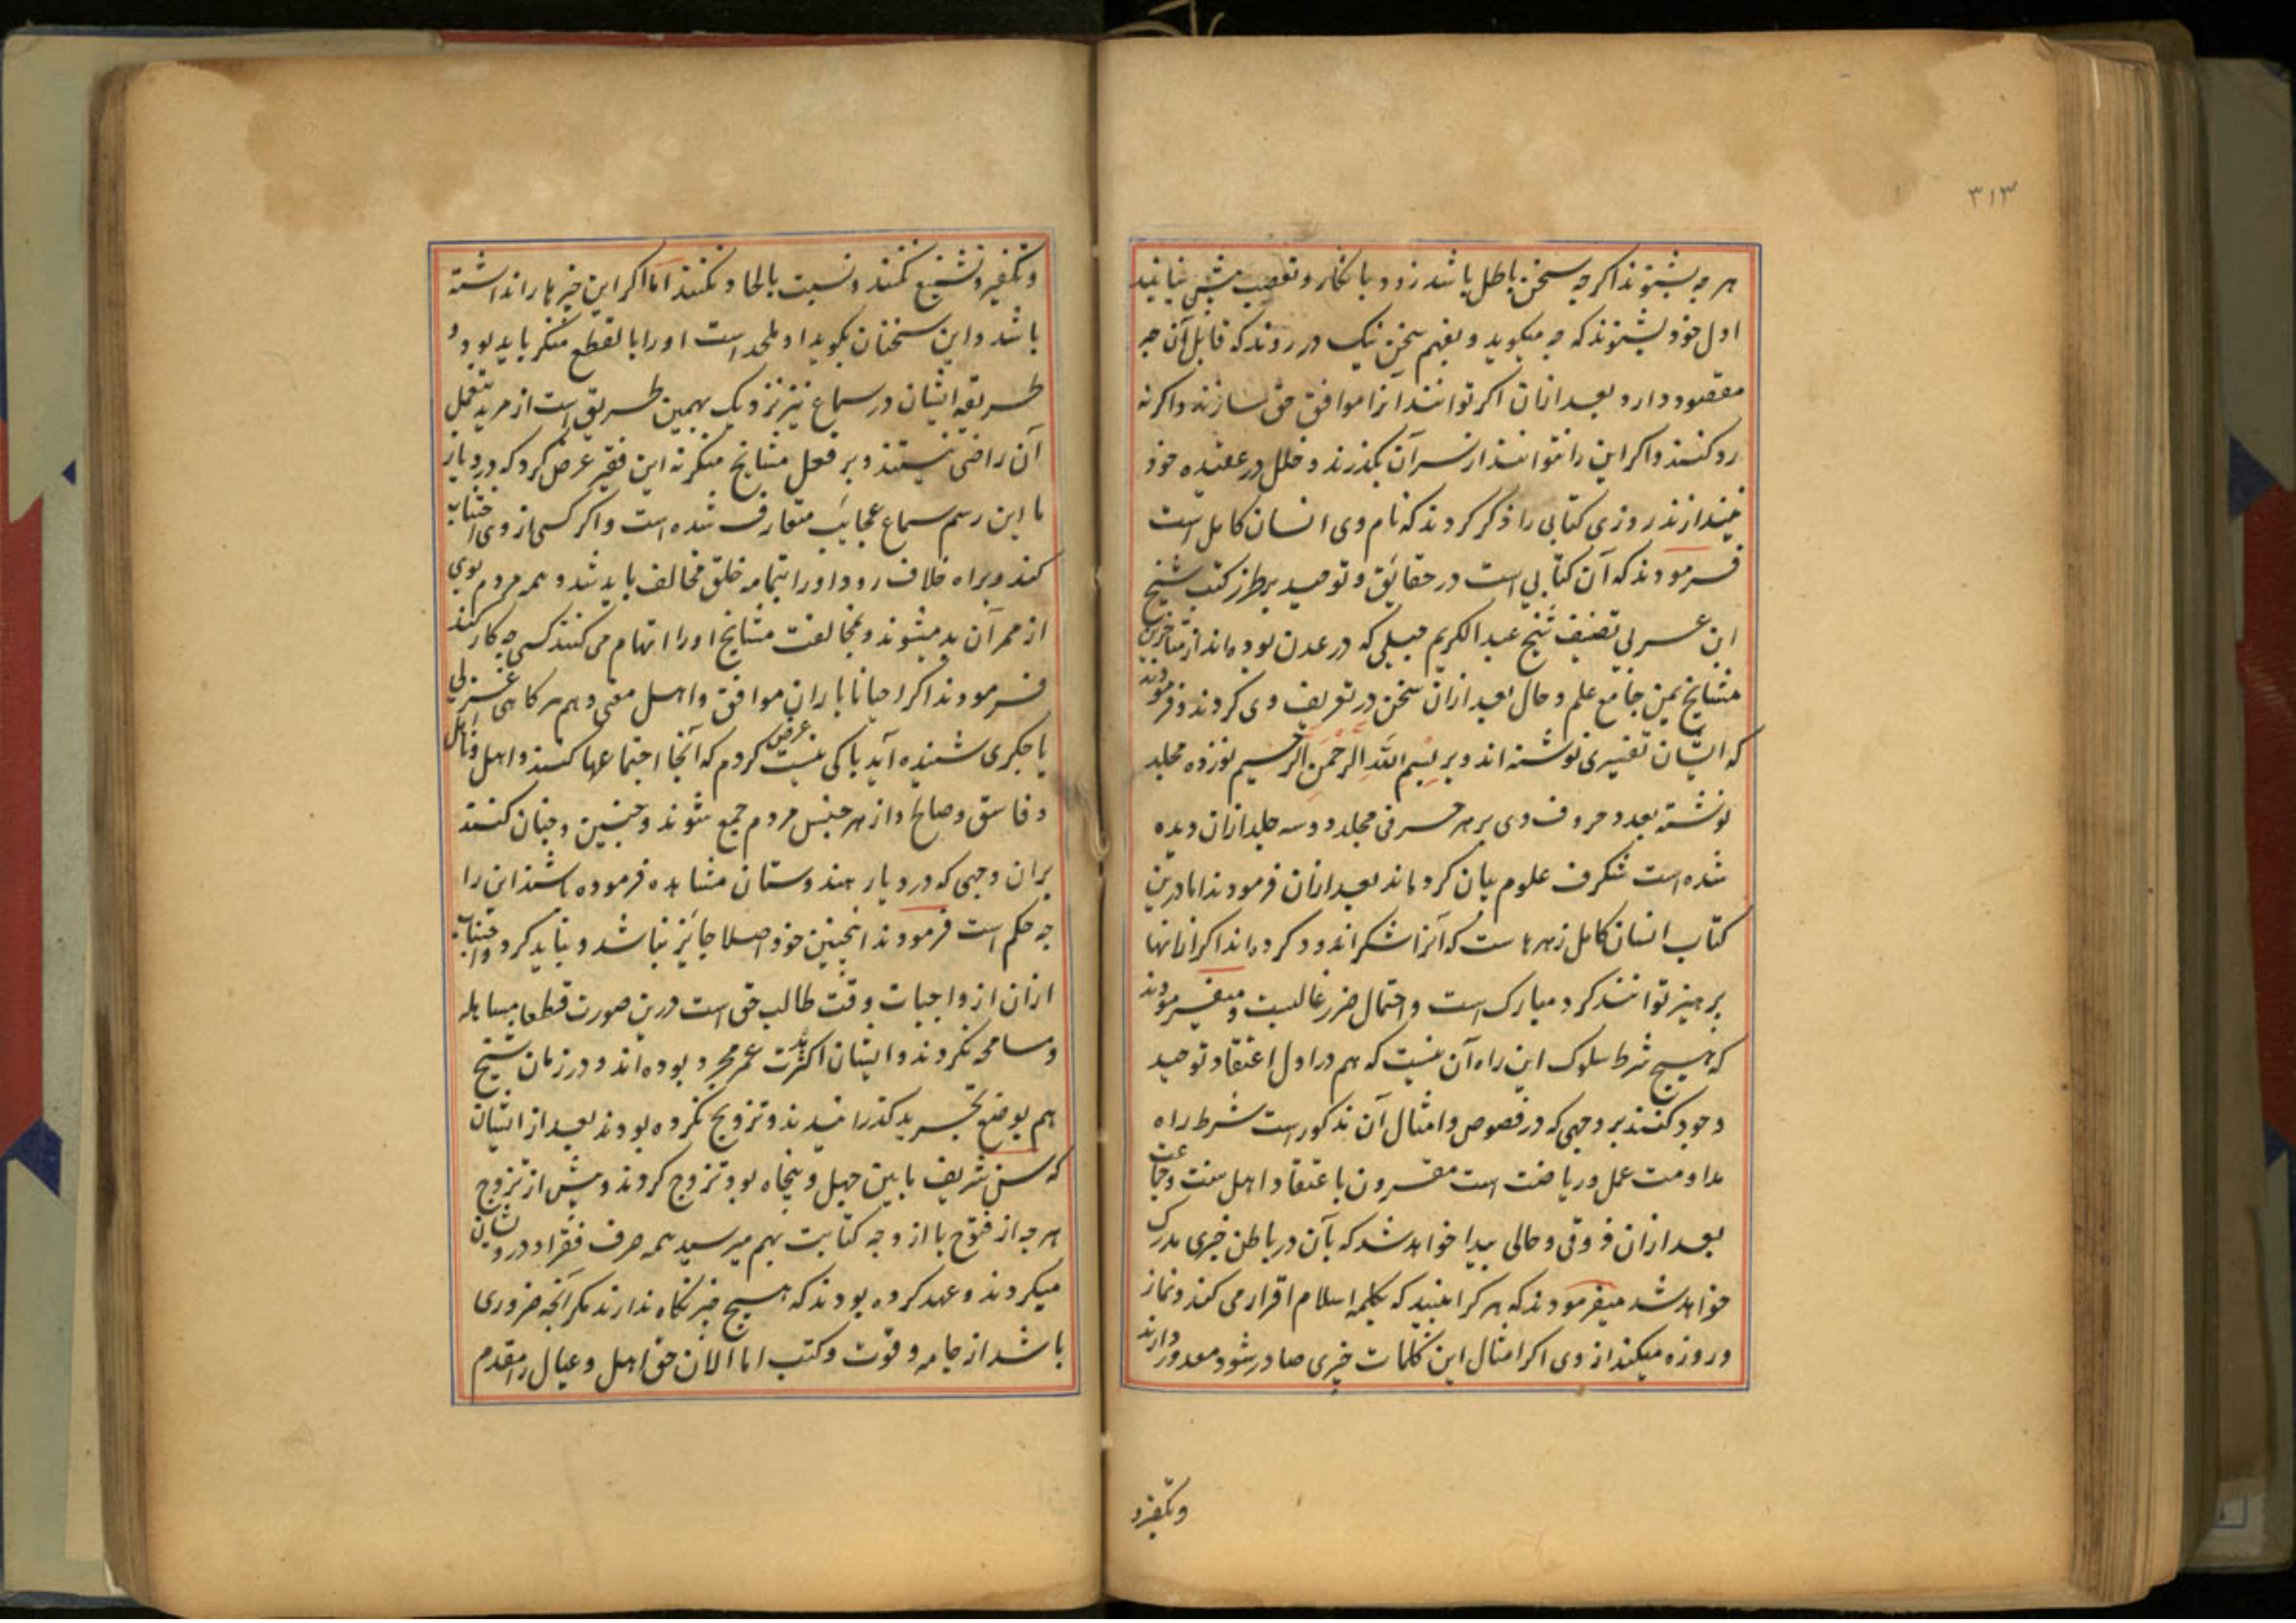 ۳۱۳
هر چه بشنوند اکرچه سخن باطل باشد زود بانکار و تعصب پیش نیایند
اول خود بشنوند که چه میکوید و بفهم سخن نیک در روند که قابل آن چه
مقصود دارد بعد ازان اکر توانند آنرا موافق حق سازند و اکر نه
رد کنند و اکر این را نتوانند از سر آن بکذرند و خلل در عقیده خود
نیندازند روزی کتابی را ذکر کردند که نام وی انسان کامل است
فرمودند که آن کتابی است در حقایق و توحید بر طرز کتب شیخ
ابن عربی تصنیف شیخ عبدالکریم جیلی که در عدن بوده‌اند از متاخرین
مشایخ یمن جامع علم و حال بعد ازان سخن در تعریف وی کردند و فرمودند
که ایشان تفسیری نوشته اند و بر بسم الله الرحمن الرحیم نوزده مجلد
نوشته بعدد حروف وی بر هر حرفی مجلد دو سه جلد ازان دیده
شده است شکرف علوم بیان کرده‌اند بعد ازان فرمودند اما درین
کتاب انسان کامل زهرهاست که آنرا شکراندود کرده‌اند اکر ازانها
پرهیز توانند کرد مبارک است و احتمال ضرر غالبست و میفرمودند
که هیچ شرط سلوک این راه آن نیست که هم در اول اعتقاد توحید
وجود کنند بر وجهی که در فصوص و امثال آن مذکور است شرط راه
مداومت عمل و ریاضت است مقرون با عتقاد اهل سنت و جماعت
بعد ازان ذوقی و حالی پیدا خواهد شد که بآن در باطن چیزی مدرک
خواهد شد میفرمودند که هر کرا بینید که بکلمه اسلام اقرار می کند و نماز
و روزه میکند از وی اکر امثال این کلمات چیزی صادر شود معذور دارند
و تکفیر و
و تکفیر و تشنیع نکنند و نسبت بالحاد نکنند اما اکر این چیزها را نداشته
باشد و این سخنان بکوید او ملحد است او را بالقطع منکر باید بود و
طریقه ایشان در سماع نیز نزدیک بهمین طریق است از مرید بفعل
آن راضی نیستند و بر فعل مشایخ منکر نه این فقیر عرض کرد که در دیار
ما این رسم سماع عجایب متعارف شده است و اکر کسی از وی اجتناب
کند و براه خلاف رود او را بتمامه خلق مخالف باید شد و همه مردم بوی
از ممر آن بد میشوند و بمخالفت مشایخ او را اتهام می کنند کسی چه کار کند
فرمودند اکر احیانا با یاران موافق و اهل معنی و هم هر کاهی غزلی
یا جکری شنیده آید باکی نیست عرض کردم که آنجا اجتماعها کنند و اهل و نااهل
و فاسق و صالح و از هر جنس مردم جمع شوند و چنین و چنان کنند
بران وجهی که در دیار هندوستان مشاهده فرموده باشند این را
چه حکم است فرمودند اینچنین خود اصلا جایز نباشد و نباید کرد و اجتناب
ازان از واجبات وقت طالب حق است درین صورت قطعا مساهله
و مسامحه نکردند و ایشان اکثر مدت عمر مجرد بوده‌اند و در زمان شیخ
هم بوضع تجرید کذرانیدند و تزویج نکرده بودند بعد از ایشان
که سن شریف ما بین چهل و پنجاه بود تزوج کردند و پیش از تزوج
هر چه از فتوح یا از وجه کتابت بهم میرسید همه صرف فقرا و درویشان
میکردند و عهد کرده بودند که هیچ چیز نکاه ندارند مکر آنچه ضروری
باشد از جامه و قوت و کتب اما الان حق اهل و عیال را مقدم